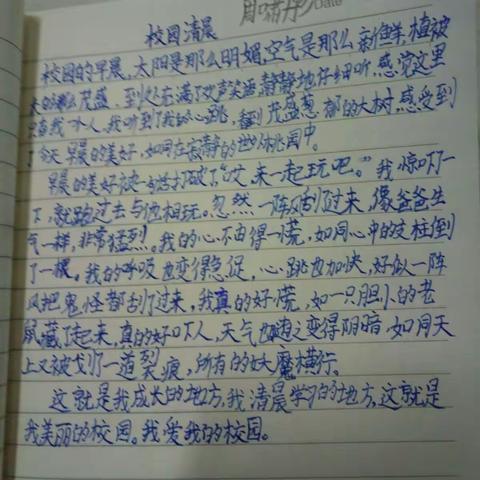 Date
校园清晨
校园的早晨,太阳是那么明媚,空气是那么新鲜,植被
长的那么茂盛,到处充满了欢声笑语,静静地仔细听,感觉这里
只有我一个人,我听到了我的心跳,看到茂盛葱郁的大树,感受到
了今天早晨的美好,如同在寂静的世外桃园中。
早晨的美好被一句话打破了"哎,来一起玩吧。"我惊吓一
下,就跑过去与他相玩。忽然一阵风刮了过来,像爸爸生
气一样,非常猛烈。我的心不由得一慌,如同心中的支柱倒
了一样。我的呼吸也变得急促,心跳也加快,好似一阵
风把鬼怪都刮了过来,我真的好慌,如一只胆小的老
鼠藏了起来,真的好吓人,天气也随之变得阴暗,如同天
上又被划了一道裂痕,所有的妖魔横行。
这就是我成长的地方,我清晨学习的地方,这就是
我美丽的校园。我爱我的校园。